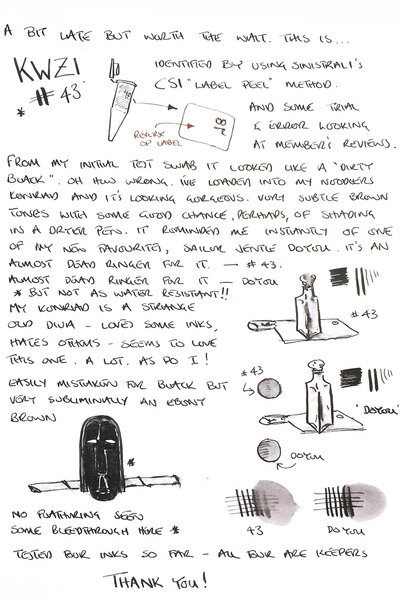 A BIT LATE BUT WORTH THE WAIT. THIS IS...
KWZI
#43
*
IDENTIFIED BY USING SINISTRAL1'S
CSI "LABEL PEEL" METHOD.
AND SOME TRIAL
& ERROR LOOKING
AT MEMBER'S REVIEWS.
REVERSE
OF LABEL
FROM MY INITIAL TEST SWAB IT LOOKED LIKE A "DIRTY
BLACK". OH HOW WRONG. I'VE LOADED INTO MY NOODLERS
KONRAD AND IT'S LOOKING GORGEOUS. VERY SUBTLE BROWN
TONES WITH SOME GOOD CHANCE, PERHAPS, OF SHADING
IN A DRYER PEN. IT REMINDED ME INSTANTLY OF ONE
OF MY NEW FAVOURITES, SAILOR JENTLE DOYOU. IT'S AN
ALMOST DEAD RINGER FOR IT. — #43.
ALMOST DEAD RINGER FOR IT — DOYOU
* BUT NOT AS WATER RESISTANT!!
MY KONRAD IS A STRANGE
OLD DIVA - LOVES SOME INKS,
HATES OTHERS - SEEMS TO LOVE
THIS ONE. A LOT. AS DO I!
#43
EASILY MISTAKEN FOR BLACK BUT
VERY SUBLIMINALLY AN EBONY
BROWN
#43
"DOYOU"
DOYOU
*
NO FEATHERING SEEN
SOME BLEEDTHROUGH HERE *
43
DOYOU
TESTED FOUR INKS SO FAR - ALL FOUR ARE KEEPERS
THANK YOU!